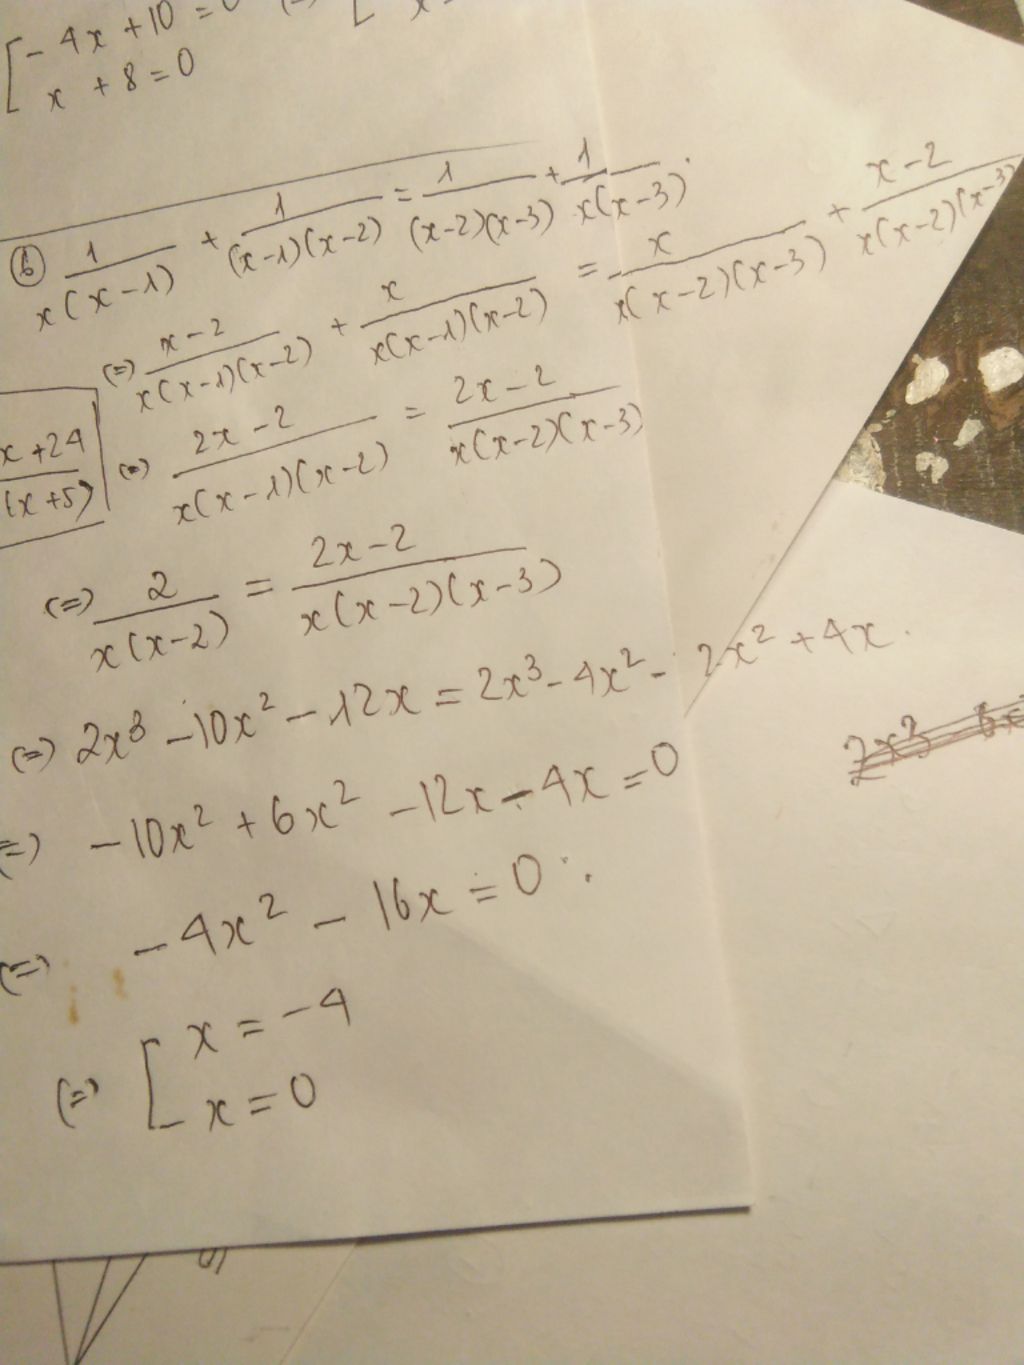 - 4x + 10 = 0 (=)
x + 8 = 0
6 1/x(x-1) + 1/(x-1)(x-2) = 1/(x-2)(x-3) + 1/x(x-3).
(=) x-2/x(x-1)(x-2) + x/x(x-1)(x-2) = x/x(x-2)(x-3) + x-2/x(x-2)(x-3)
x+24/(x+5)
(=) 2x-2/x(x-1)(x-2) = 2x-2/x(x-2)(x-3)
(=) 2/x(x-2) = 2x-2/x(x-2)(x-3)
(=) 2x³ - 10x² - 12x = 2x³ - 4x² - 2x² + 4x.
=) - 10x² + 6x² - 12x - 4x = 0
(=) - 4x² - 16x = 0
(=) [ x = -4
x = 0